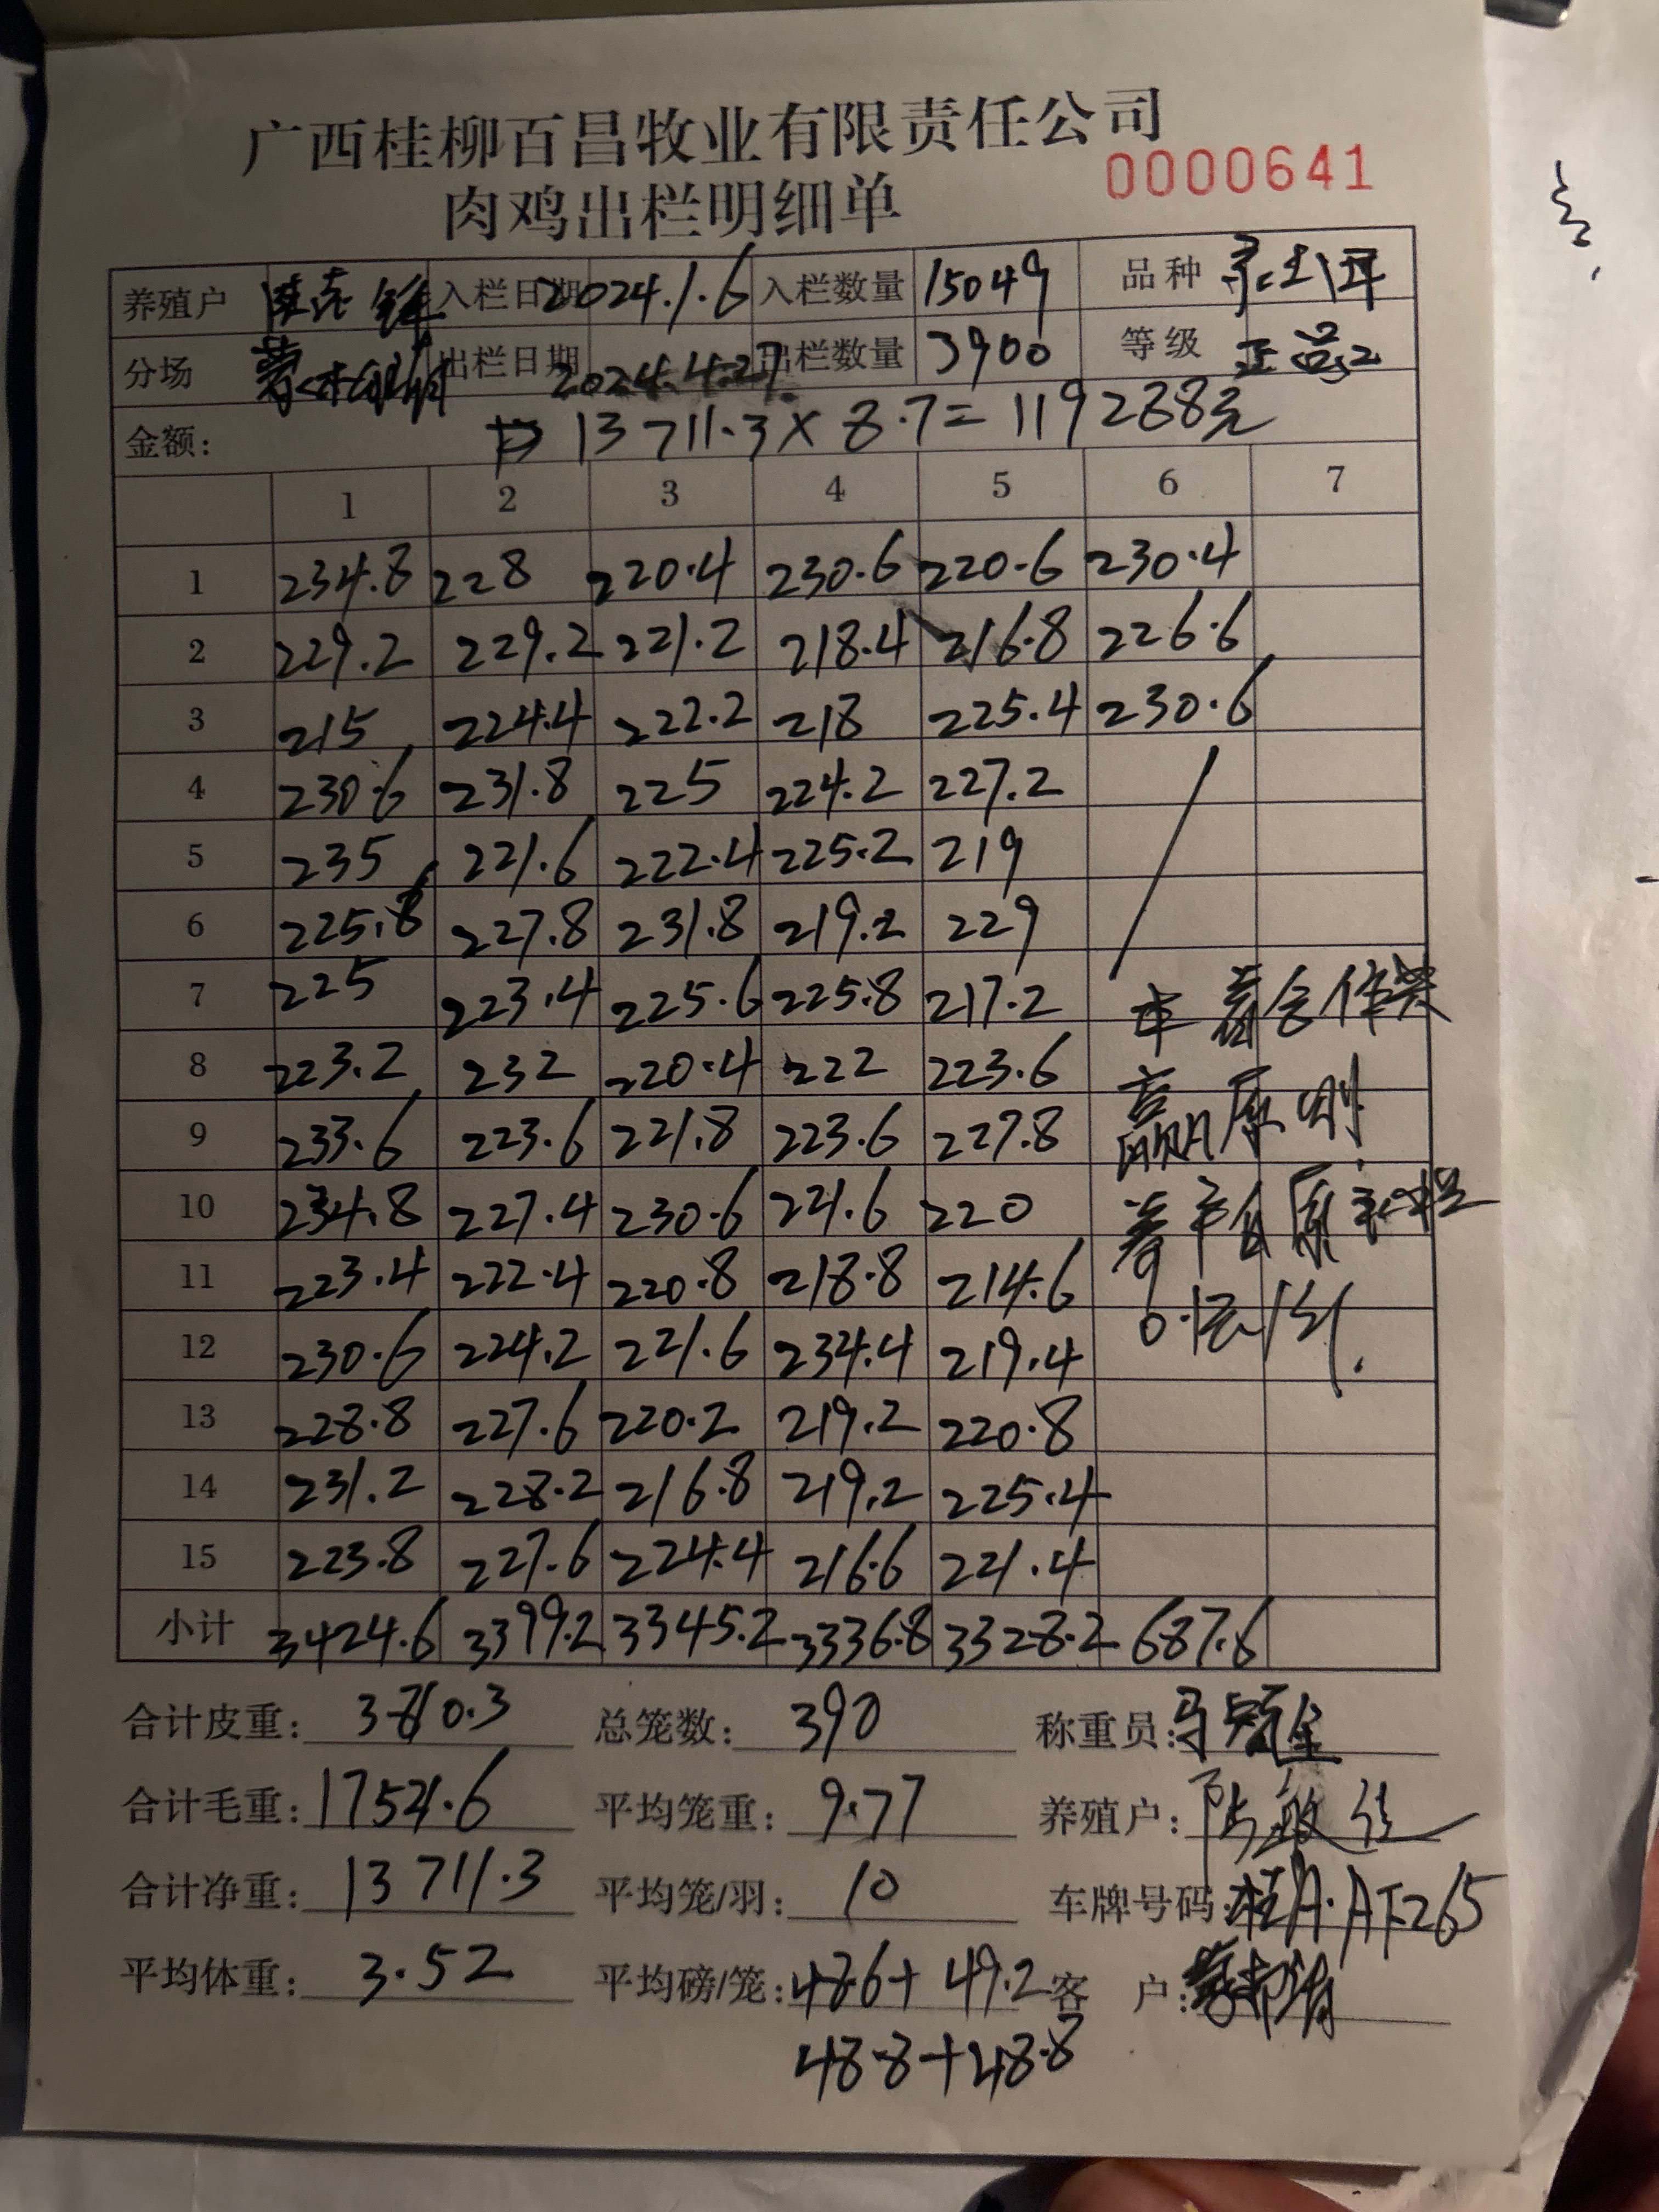 广西桂柳百昌牧业有限责任公司
肉鸡出栏明细单 0000641
养殖户 入栏日期 2024.1.6 入栏数量 15049 品种
分场 出栏日期 2024.4.27. 出栏数量 3900 等级 正品
金额: 13711.3×8.7=119288元
1 2 3 4 5 6 7
1 234.8 228 220.4 230.6 220.6 230.4
2 229.2 229.2 221.2 218.4 216.8 226.6
3 215 224.4 222.2 218 225.4 230.6
4 230.6 231.8 225 224.2 227.2
5 235 221.6 222.4 225.2 219
6 225.8 227.8 231.8 219.2 229
7 225 223.4 225.6 225.8 217.2 本着合作共
8 223.2 232 220.4 222 223.6
9 233.6 223.6 221.8 223.6 227.8 赢原则
10 234.8 227.4 230.6 221.6 220
11 223.4 222.4 220.8 218.8 214.6
12 230.6 224.2 221.6 234.4 219.4 0.1元/斤.
13 228.8 227.6 220.2 219.2 220.8
14 231.2 228.2 216.8 219.2 225.4
15 223.8 227.6 224.4 216.6 221.4
小计 3424.6 3399.2 3345.2 3336.8 3328.2 687.6
合计皮重: 3810.3 总笼数: 390 称重员:
合计毛重: 17521.6 平均笼重: 9.77 养殖户: 陈敏佳
合计净重: 13711.3 平均笼/羽: 10 车牌号码: 桂A·AF265
平均体重: 3.52 平均磅/笼: 48.6+49.2 客 户:
48.8+48.8